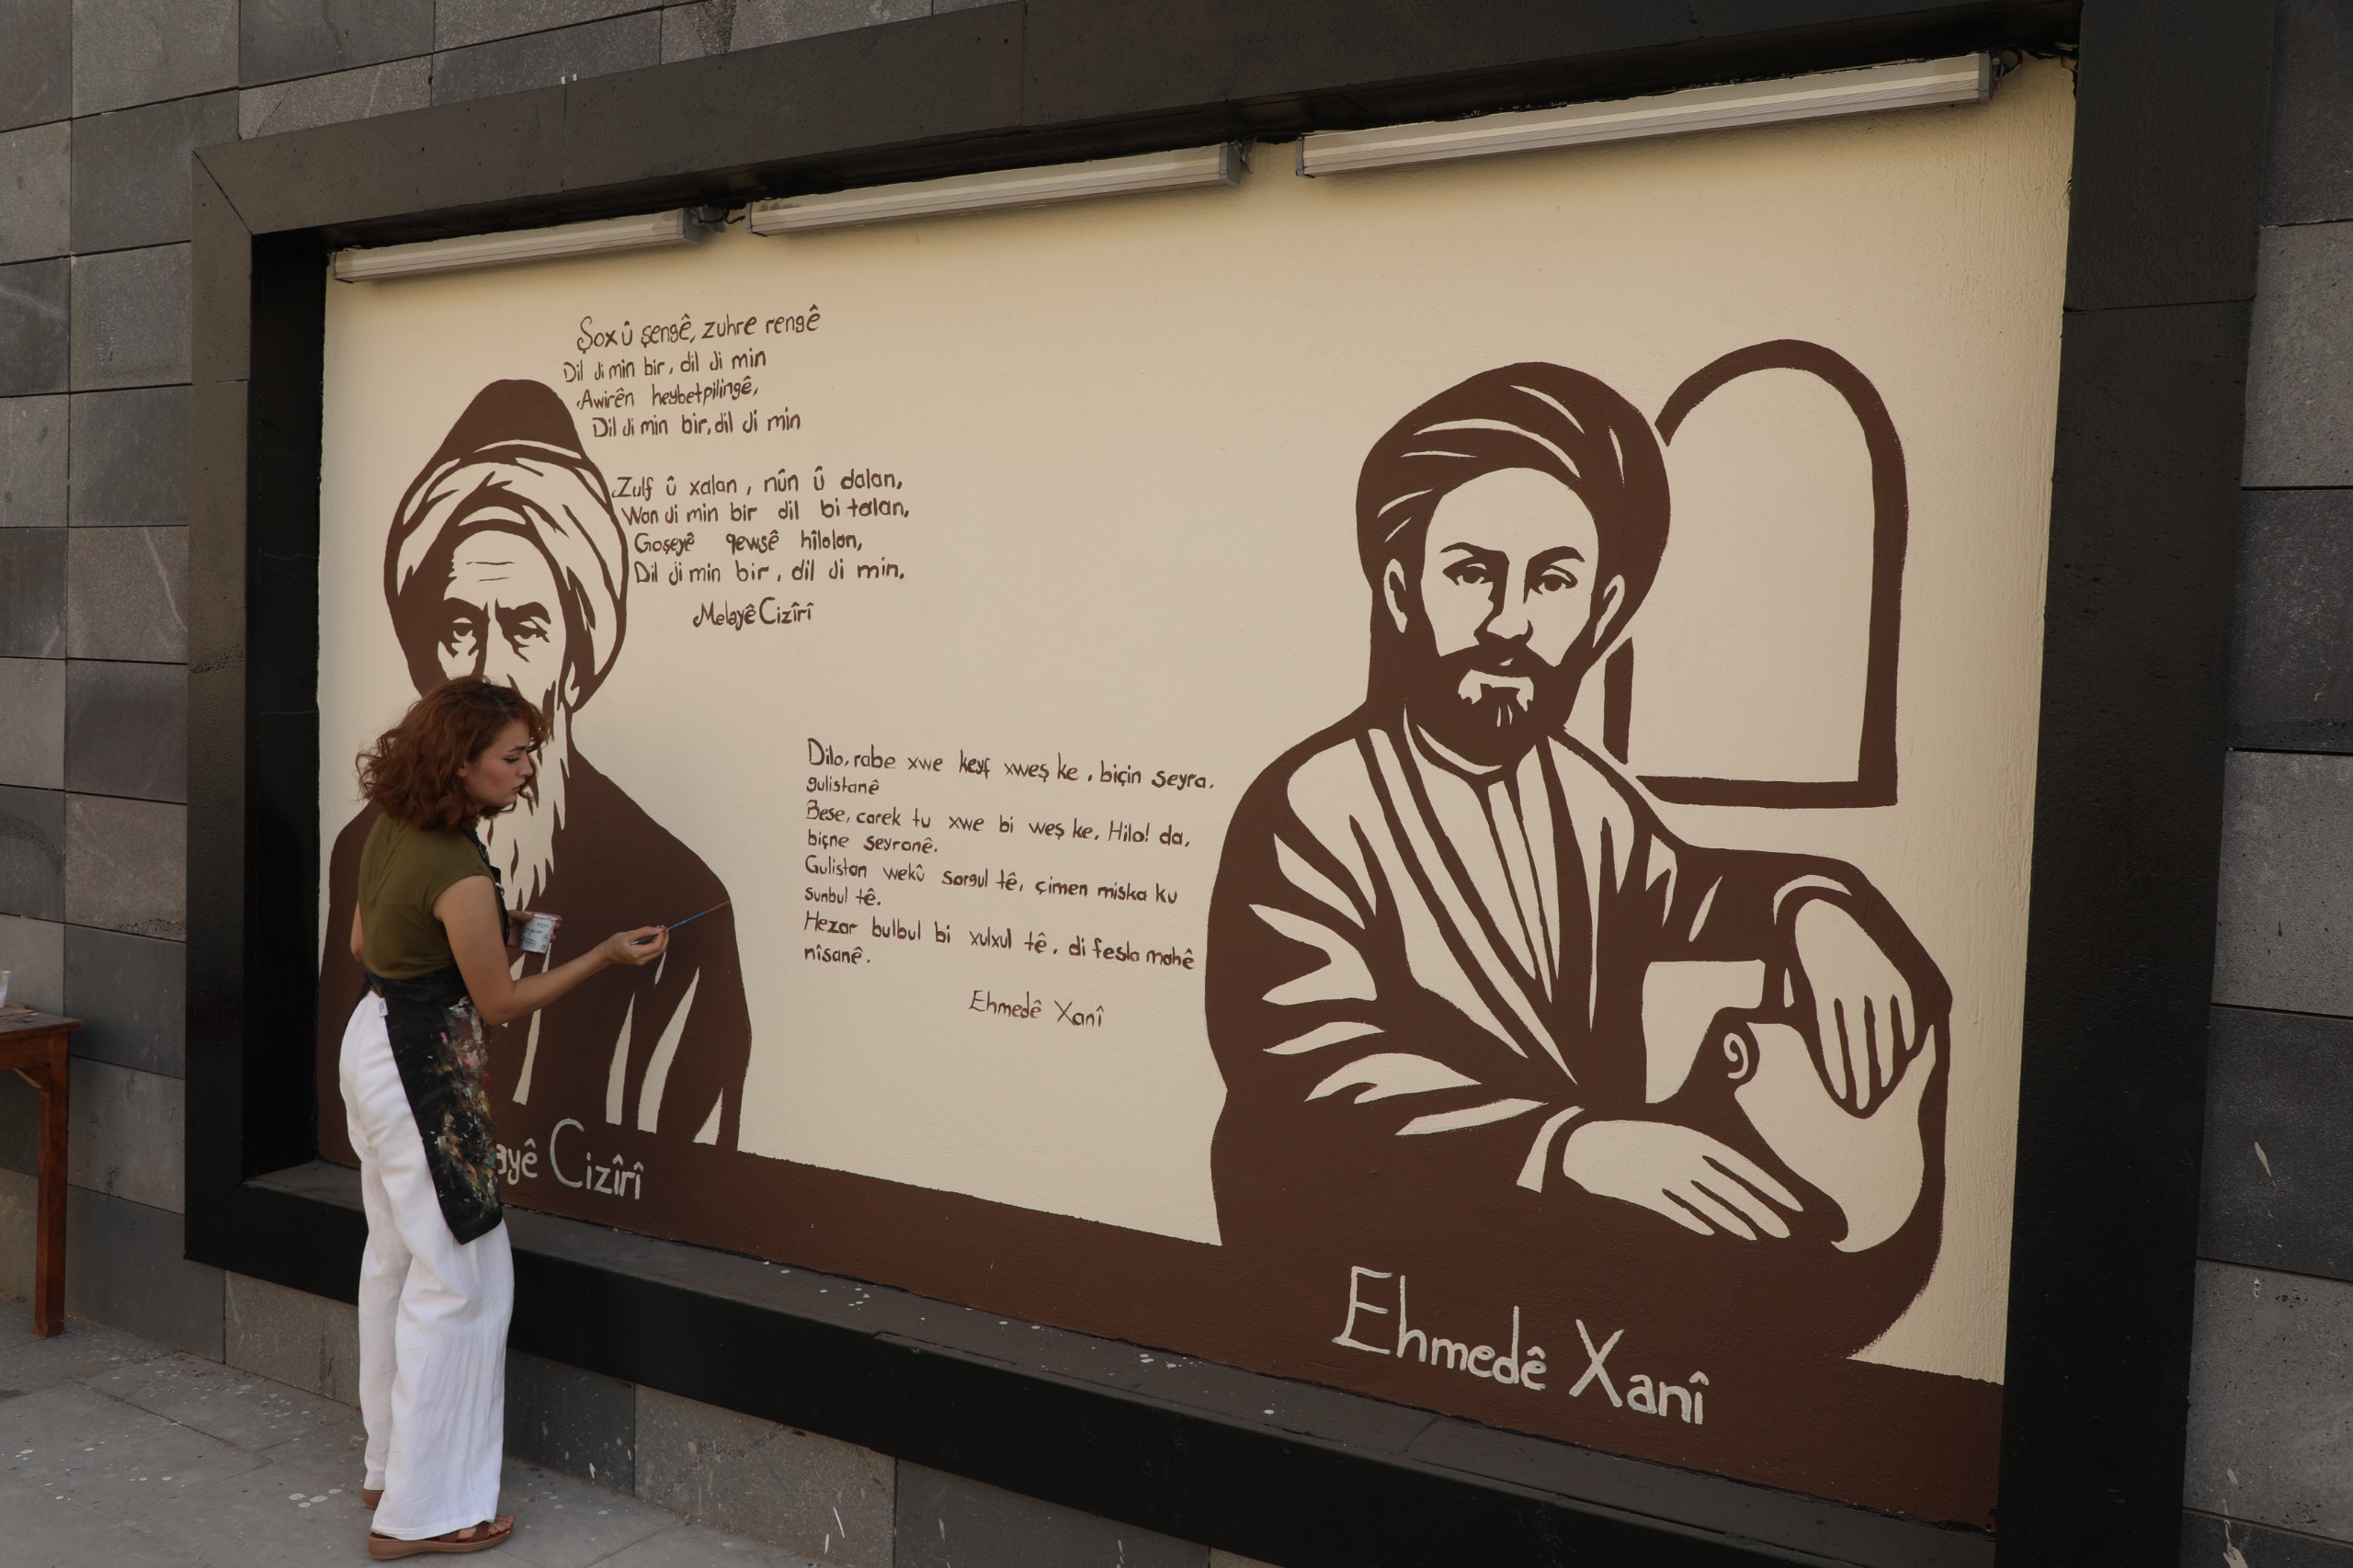 Şox û şengê, zuhre rengê
Dil ji min bir, dil ji min
Awirên heybetpilingê,
Dil ji min bir, dil ji min
Zulf û xalan, nûn û dalan,
Wan ji min bir dil bi talan,
Goşeyê qewsê hîlalan,
Dil ji min bir, dil ji min.
Melayê Cizîrî
Dilo, rabe xwe keyf xweş ke, biçin seyra.
gulistanê
Bese, carek tu xwe bi weş ke. Hilo! da,
biçne seyranê.
Gulistan wekû sorgul tê, çimen miska ku
sunbul tê.
Hezar bulbul bi xulxul tê, di fesla mahê
nîsanê.
Ehmedê Xanî
ayê Cizîrî
Ehmedê Xanî